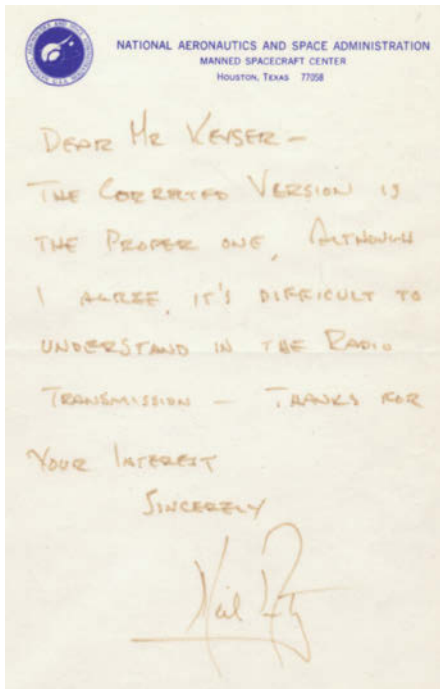 NATIONAL AERONAUTICS AND SPACE ADMINISTRATION
MANNED SPACECRAFT CENTER
HOUSTON, TEXAS 77058
DEAR MR KEYSER —
THE CORRECTED VERSION IS
THE PROPER ONE, ALTHOUGH
I AGREE, IT'S DIFFICULT TO
UNDERSTAND IN THE RADIO
TRANSMISSION — THANKS FOR
YOUR INTEREST
SINCERELY
Neil